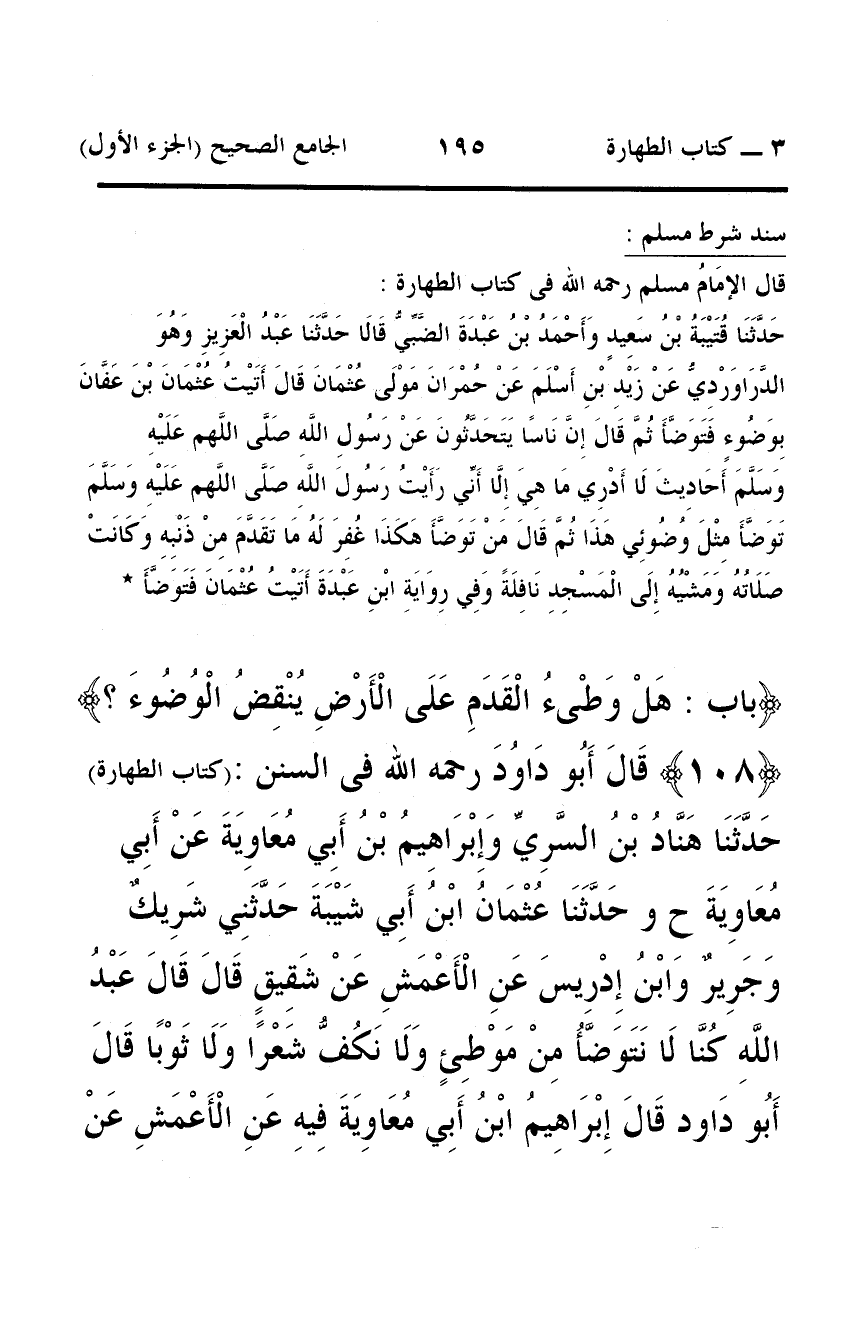 ٣ ــ كتاب الطهارة ١٩٥ الجامع الصحيح (الجزء الأول)
سند شرط مسلم :
قال الإمَامُ مسلم رحمه الله فى كتاب الطهارة :
حَدَّثَنَا قُتَيْبَةُ بْنُ سَعِيدٍ وَأَحْمَدُ بْنُ عَبْدَةَ الضَّبِّيُّ قَالَا حَدَّثَنَا عَبْدُ الْعَزِيزِ وَهُوَ
الدَّرَاوَرْدِيُّ عَنْ زَيْدِ بْنِ أَسْلَمَ عَنْ حُمْرَانَ مَوْلَى عُثْمَانَ قَالَ أَتَيْتُ عُثْمَانَ بْنَ عَفَّانَ
بِوَضُوءٍ فَتَوَضَّأَ ثُمَّ قَالَ إِنَّ نَاسًا يَتَحَدَّثُونَ عَنْ رَسُولِ اللَّهِ صَلَّى اللَّهم عَلَيْهِ
وَسَلَّمَ أَحَادِيثَ لَا أَدْرِي مَا هِيَ إِلَّا أَنِّي رَأَيْتُ رَسُولَ اللَّهِ صَلَّى اللَّهم عَلَيْهِ وَسَلَّمَ
تَوَضَّأَ مِثْلَ وُضُوئِي هَذَا ثُمَّ قَالَ مَنْ تَوَضَّأَ هَكَذَا غُفِرَ لَهُ مَا تَقَدَّمَ مِنْ ذَنْبِهِ وَكَانَتْ
صَلَاتُهُ وَمَشْيُهُ إِلَى الْمَسْجِدِ نَافِلَةً وَفِي رِوَايَةِ ابْنِ عَبْدَةَ أَتَيْتُ عُثْمَانَ فَتَوَضَّأَ *
﴿باب : هَلْ وَطْىءُ الْقَدَمِ عَلَى الْأَرْضِ يُنْقِضُ الْوُضُوءَ ؟﴾
﴿١٠٨﴾ قَالَ أَبُو دَاوُدَ رحمه الله فى السنن :(كتاب الطهارة)
حَدَّثَنَا هَنَّادُ بْنُ السَّرِيِّ وَإِبْرَاهِيمُ بْنُ أَبِي مُعَاوِيَةَ عَنْ أَبِي
مُعَاوِيَةَ ح و حَدَّثَنَا عُثْمَانُ ابْنُ أَبِي شَيْبَةَ حَدَّثَنِي شَرِيكٌ
وَجَرِيرٌ وَابْنُ إِدْرِيسَ عَنِ الْأَعْمَشِ عَنْ شَقِيقٍ قَالَ قَالَ عَبْدُ
اللَّهِ كُنَّا لَا نَتَوَضَّأُ مِنْ مَوْطِئٍ وَلَا نَكُفُّ شَعْرًا وَلَا ثَوْبًا قَالَ
أَبُو دَاود قَالَ إِبْرَاهِيمُ ابْنُ أَبِي مُعَاوِيَةَ فِيهِ عَنِ الْأَعْمَشِ عَنْ